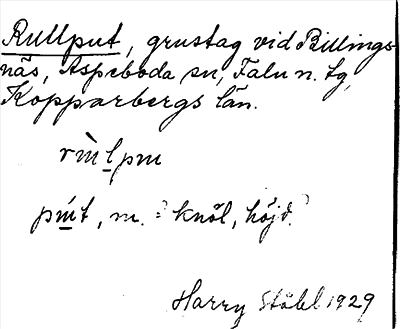 Rullput, grustag vid Billings-
näs, Aspeboda sn, Falu n. tg,
Kopparbergs län.
pɯ́t, m. = knöl, höjd.
Harry Ståhl 1929